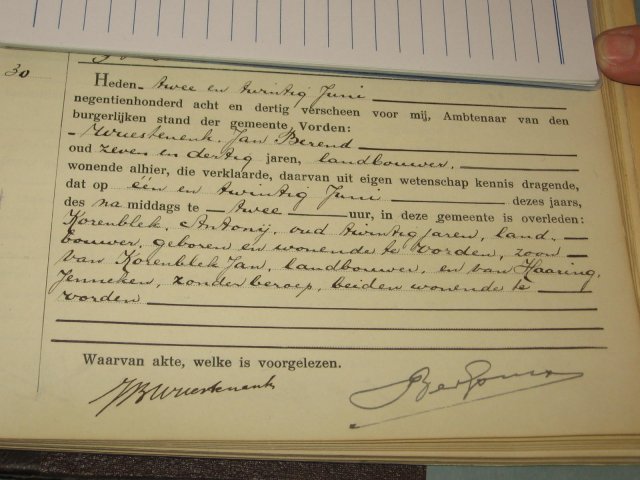 30
Heden twee en twintig Juni
negentienhonderd acht en dertig verscheen voor mij, Ambtenaar van den
burgerlijken stand der gemeente, Vorden:
Wuestenenk, Jan Berend
oud zeven en dertig jaren, landbouwer,
wonende alhier, die verklaarde, daarvan uit eigen wetenschap kennis dragende,
dat op één en twintig Juni dezes jaars,
des na middags te twee uur, in deze gemeente is overleden:
Korenblek, Antonij, oud twintig jaren, land-
bouwer, geboren en wonende te Vorden, zoon
van Korenblek Jan, landbouwer, en van Haaring,
Jenneken, zonder beroep, beiden wonende te
Vorden
Waarvan akte, welke is voorgelezen.
JBWuestenenk